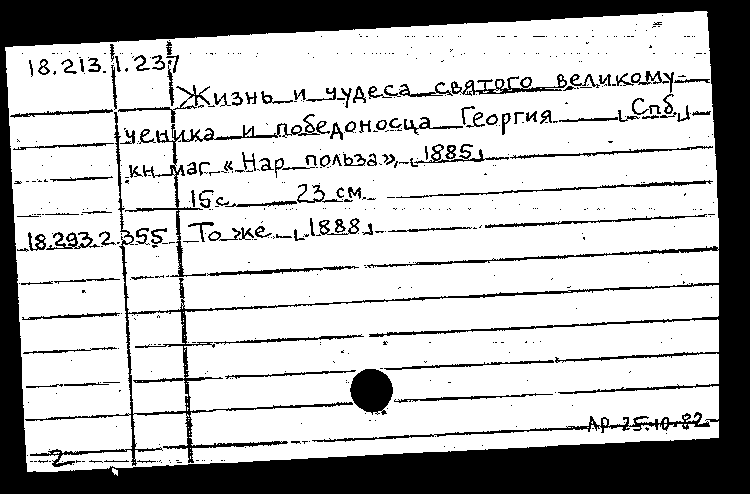 18.213.1.237
Жизнь и чудеса святого великому-
ченика и победоносца Георгия [Спб],
кн. маг. «Нар. польза», [1885]
15 с. 23 см.
18.293.2.355 То же. [1888]
АР 25.10.82
2